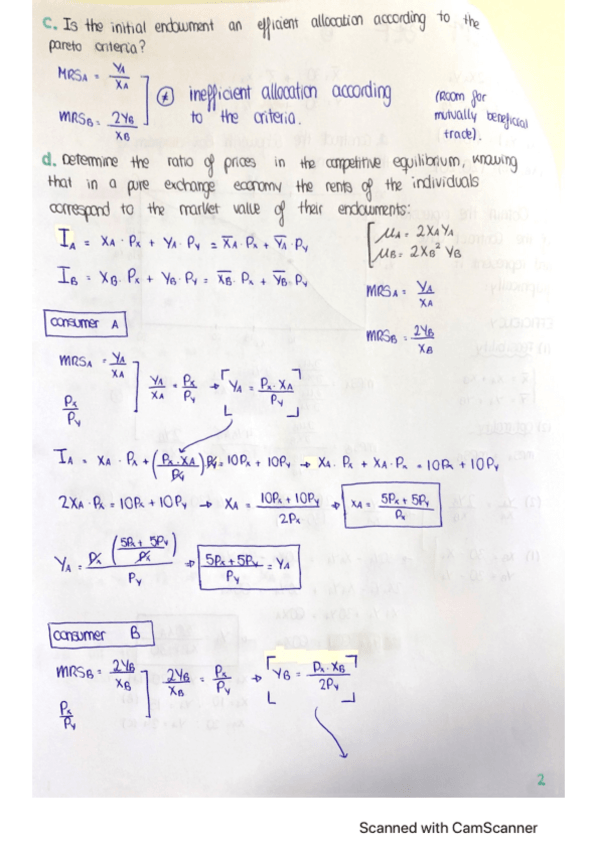 c. Is the initial endowment an efficient allocation according to the
pareto criteria?
MRSA = YA/XA
MRSB = 2YB/XB
≠ inefficient allocation according
to the criteria.
(Room for
mutually beneficial
trade).
d. Determine the ratio of prices in the competitive equilibrium, knowing
that in a pure exchange economy the rents of the individuals
correspond to the market value of their endowments:
IA = XA · Px + YA · Py = X̄A · Px + ȲA · Py
IB = XB · Px + YB · Py = X̄B · Px + ȲB · Py
μA = 2XAYA
μB = 2XB² YB
MRSA = YA/XA
MRSB = 2YB/XB
consumer A
MRSA = YA/XA
Px/Py
YA/XA = Px/Py → YA = Px · XA/Py
IA = XA · Px + (Px · XA/Py) Py = 10Px + 10Py → XA · Px + XA · Px = 10Px + 10Py
2XA · Px = 10Px + 10Py → XA = 10Px + 10Py/2Px → XA = 5Px + 5Py/Px
YA = Px (5Px + 5Py/Px)/Py → 5Px + 5Py/Py = YA
consumer B
MRSB = 2YB/XB
Px/Py
2YB/XB = Px/Py → YB = Px · XB/2Py
2
Scanned with CamScanner